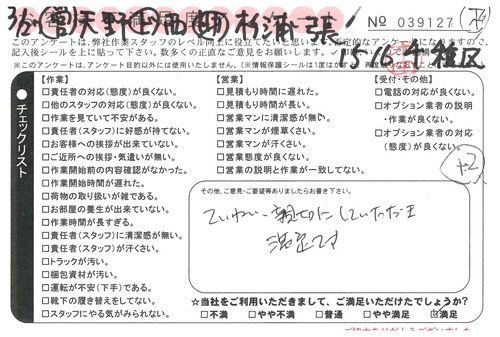 № 039127
このアンケートは、弊社作業スタッフのレベル向上に役立てたいと思います。否定的なアンケートになりますので、
記入後シールを上に貼って下さい。数多くの正直なご意見をお願いします。
※このアンケートは、アンケート目的以外には使用いたしません。
15 16 千種区
チェックリスト
【作業】
□責任者の対応(態度)が良くない。
□他のスタッフの対応(態度)が良くない。
□作業を見ていて不安がある。
□責任者(スタッフ)に好感が持てない。
□お客様への挨拶が出来ていない。
□ご近所への挨拶・気遣いが無い。
□作業開始前の内容確認がなかった。
□作業開始時間が遅れた。
□荷物の取り扱いが雑である。
□お部屋の養生が出来ていない。
□作業時間が長すぎる。
□責任者(スタッフ)に清潔感が無い。
□責任者(スタッフ)が汗くさい。
□トラックが汚い。
□梱包資材が汚い。
□運転が不安(下手)である。
□靴下の履き替えをしてない。
□スタッフにやる気がみられない。
【営業】
□見積もり時間に遅れた。
□見積もり時間が長い。
□営業マンに清潔感が無い。
□営業マンが煙草くさい。
□営業マンが汗くさい。
□営業態度が良くない。
□営業の説明と作業が一致してない。
【受付・その他】
□電話の対応が良くない。
□オプション業者の説明
・作業が良くない。
□オプション業者の対応
(態度)が良くない。
+2
その他、ご意見・ご要望等ありましたらお書き下さい。
ていねい、親切にしていただき
満足です
☆当社をご利用いただきまして、ご満足いただけたでしょうか?
□不満 □やや不満 □普通 □やや満足 ☑満足